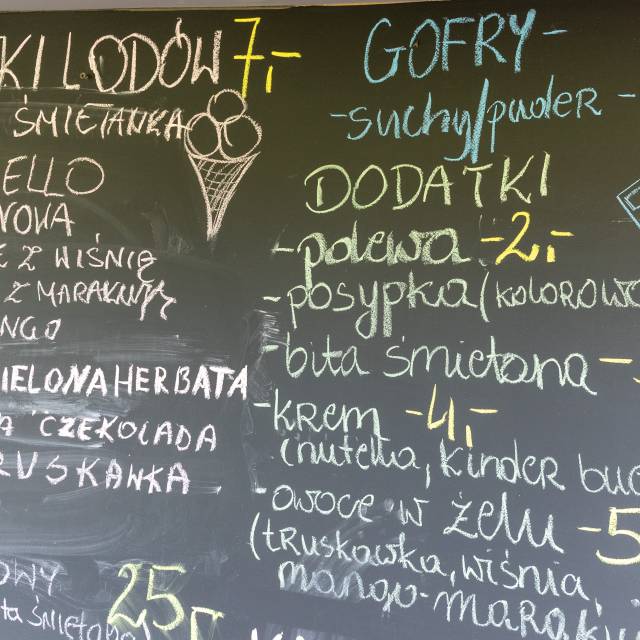 KI LODÓW 7,-
ŚMIETANKA
ELLO
NOWA
Z WIŚNIĘ
Z MARAKUJĄ
NGO
IELONA HERBATA
A CZEKOLADA
RUSKAWKA
OWY
ta śmietana 25
GOFRY -
- suchy/puder -
DODATKI
- polewa - 2,-
- posypka (KOLOROWA
- bita śmietana -
- KREM - 4,-
(nutella, KINDER BUE
- owoce w żelu - 5
(tRUSKAWKA, wiśnia,
mango-maraku